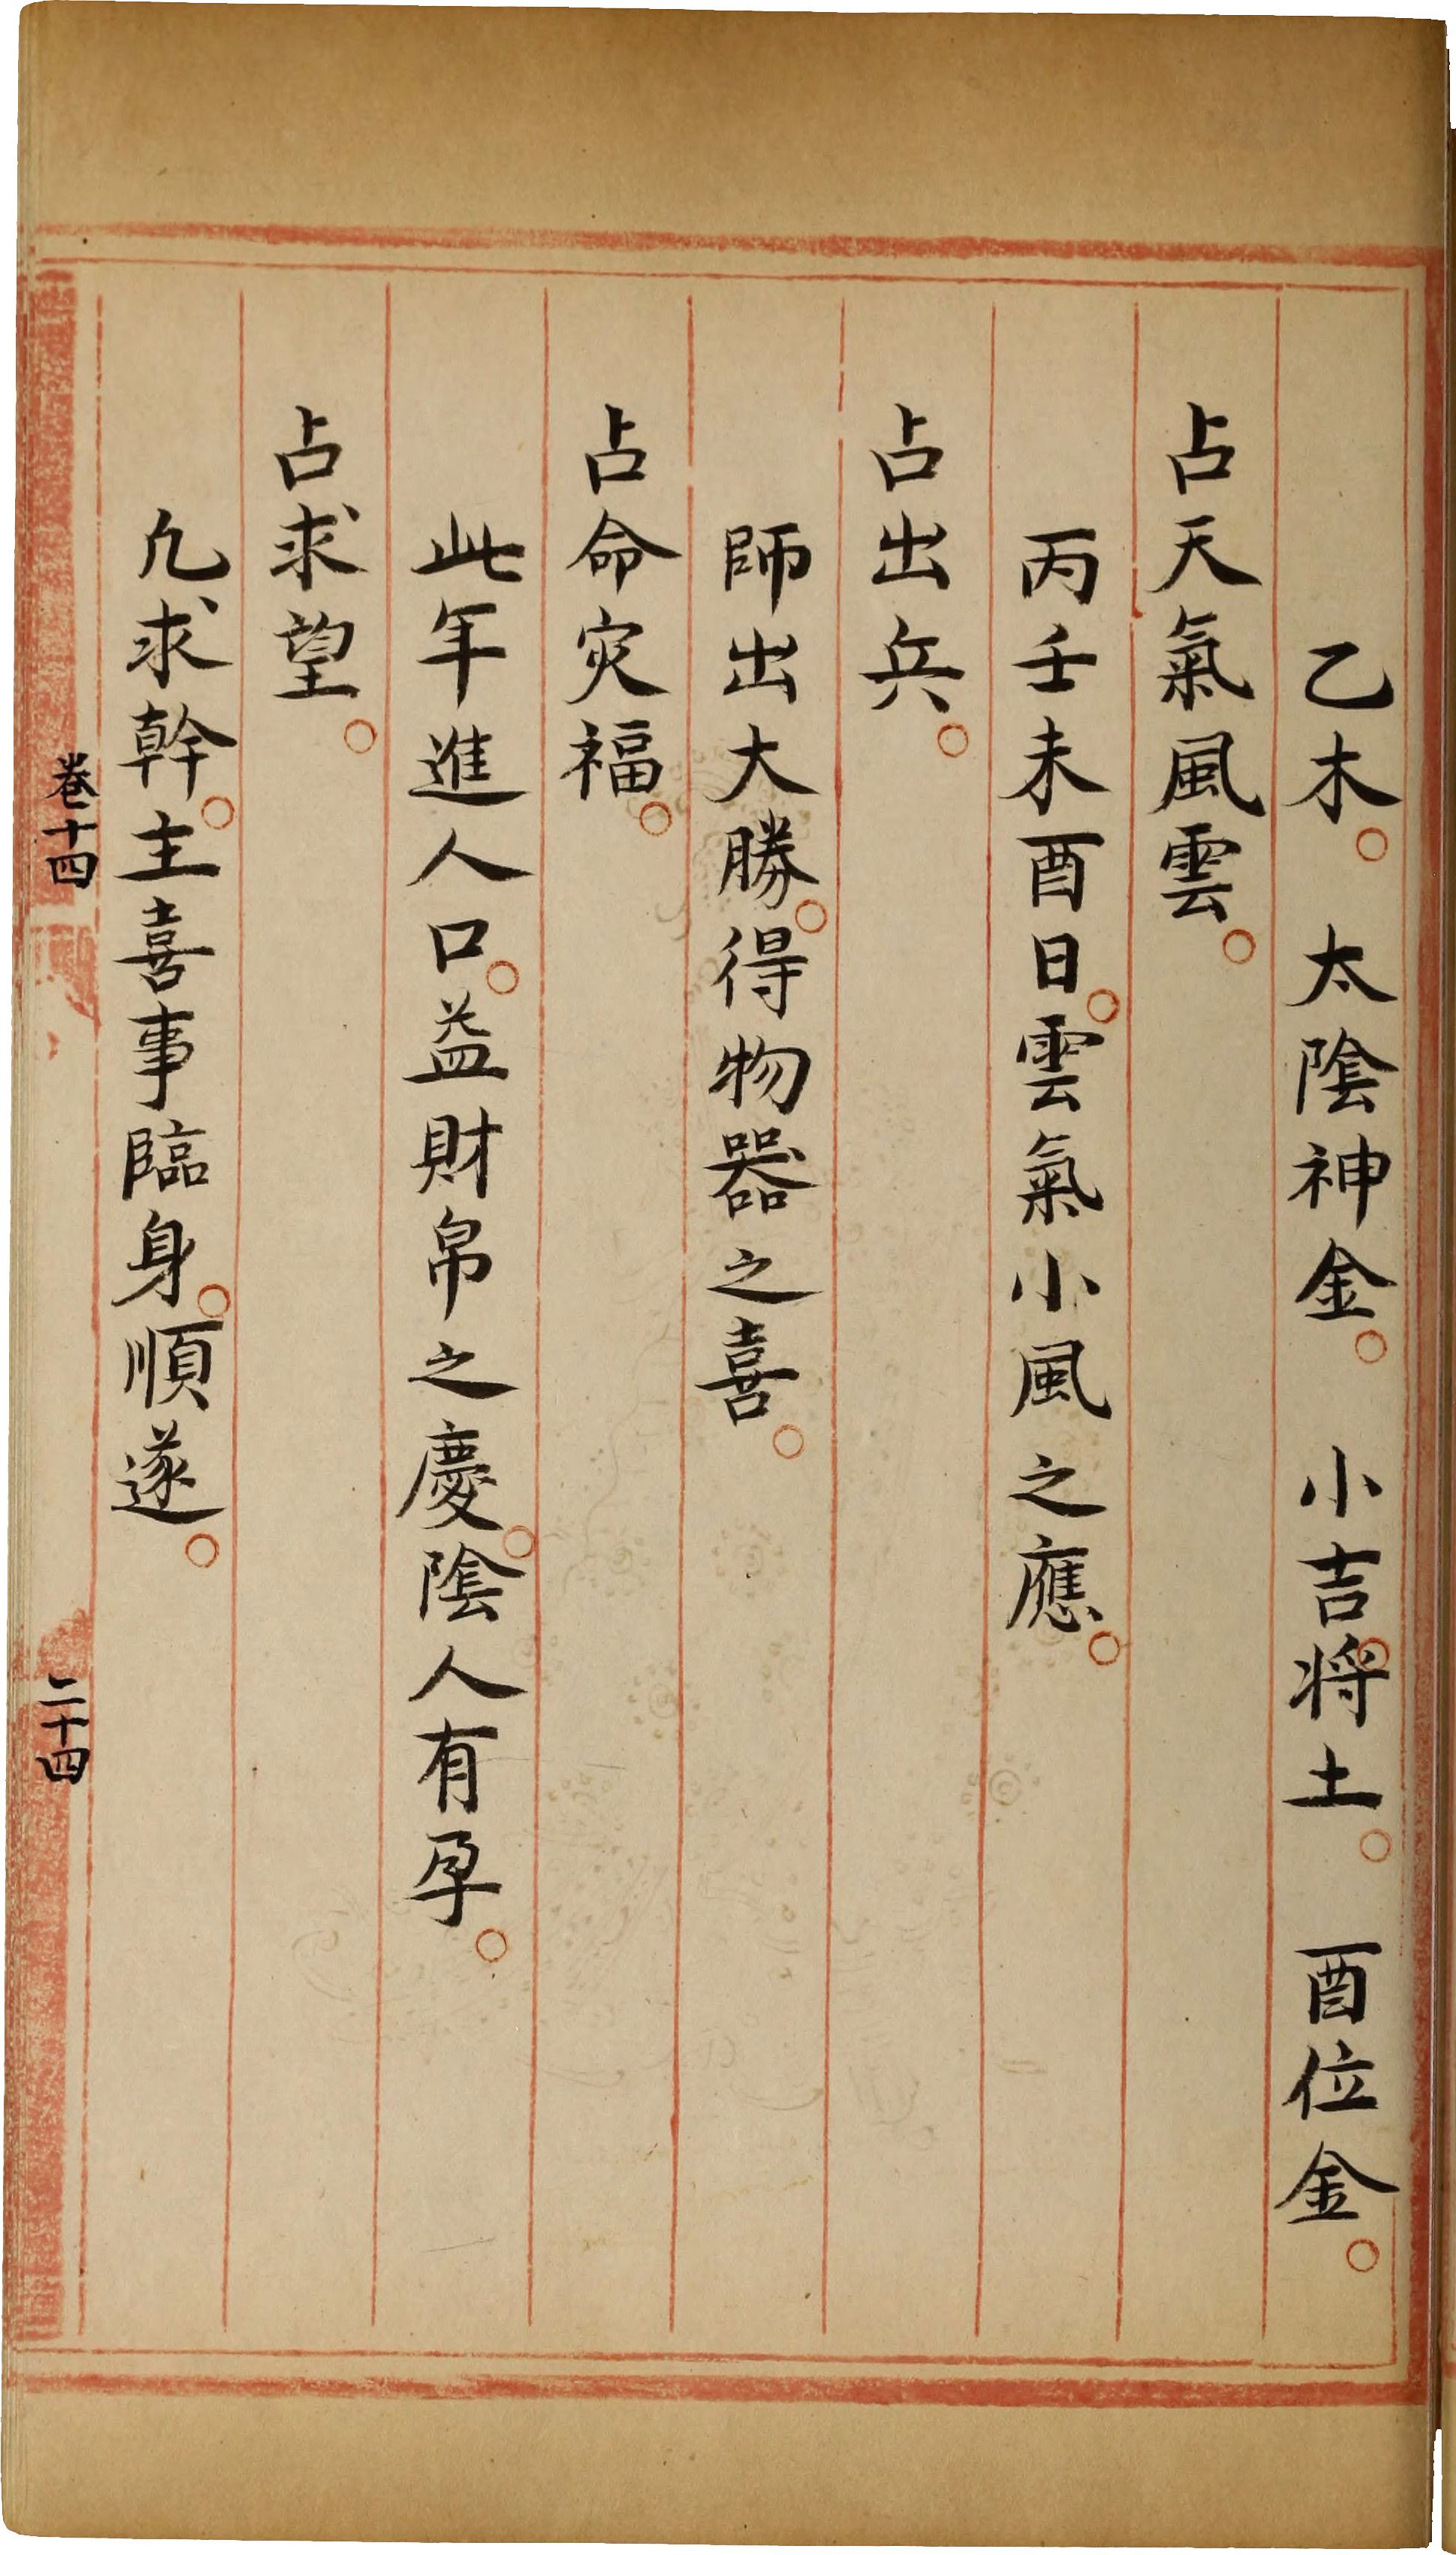 乙木。　太陰神金。　小吉。将土。　酉位金。
占天氣風雲。
丙壬未酉日。雲氣小風之應。
占出兵。
師出大勝。得物器之喜。
占命灾福。
此年進人口。益財帛之慶。陰人有孕。
占求望。
凢求幹。主喜事臨身。順遂。
卷十四
二十四